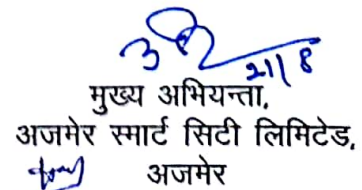 21/8
मुख्य अभियन्ता,
अजमेर स्मार्ट सिटी लिमिटेड,
अजमेर